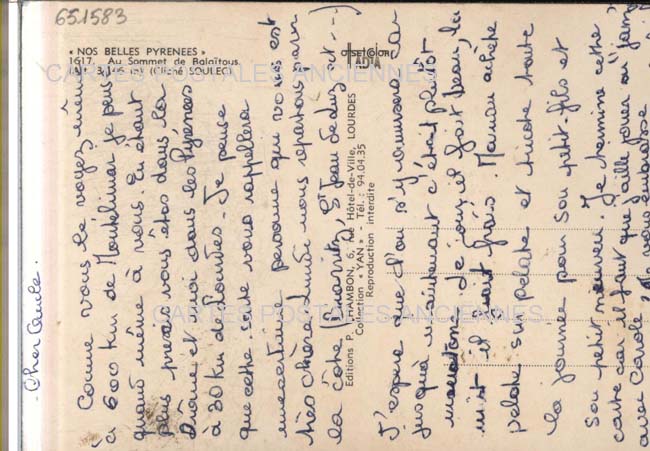 651583
« NOS BELLES PYRENEES »
1617. Au Sommet de Balaïtous
alt. 3.146 m (Cliché SOULE)
OFFSET COLOR
TADIA
CARTES POSTALES ANCIENNES
Editions P. CHAMBON, 6, rue Hôtel-de-Ville, LOURDES
Collection « YAN » - Tél. : 94.04.35
Reproduction interdite
CARTES POSTALES ANCIENNES
Cher
Comme vous le voyez, même
à 600 km de Montélimar je pense
quand même à vous. En étant
plus précis vous êtes dans la
Drôme et moi dans les Pyrénées
à 30 km de Lourdes. Je pense
que cette carte vous rappellera
une certaine personne qui vous est
très chère. Lundi nous repartons par
la côte (Biarritz, St Jean de Luz et ---)
J'espère que l'on s'y amusera car
jusqu'à maintenant c'était plutôt
monotone. Le jour, il fait beau, la
nuit il fait frais. Maman achète
pelote sur pelote et tricote toute
la journée pour son petit-fils et
son petit neveu. Je termine cette
carte car il faut que j'aille jouer au
avec Carole. Je vous embrasse